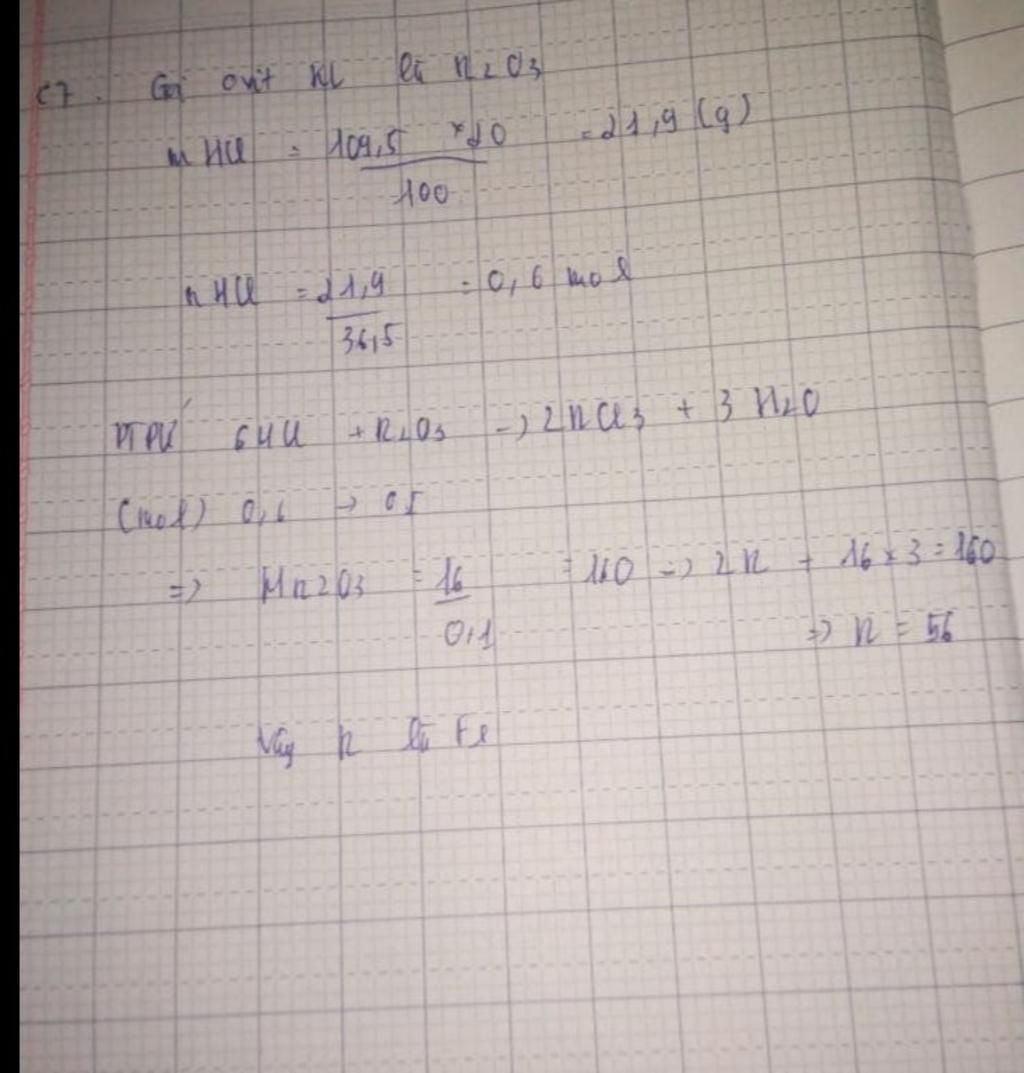 C7. Gọi oxit KL là R2O3
m HCl = 109,5 × 20 / 100 = 21,9 (g)
n HCl = 21,9 / 36,5 = 0,6 mol
PTPƯ 6HCl + R2O3 -> 2RCl3 + 3H2O
(mol) 0,6 ->
=> MR2O3 = 16 / 0,1 = 160 => 2R + 16 × 3 = 160
=> R = 56
Vậy R là Fe